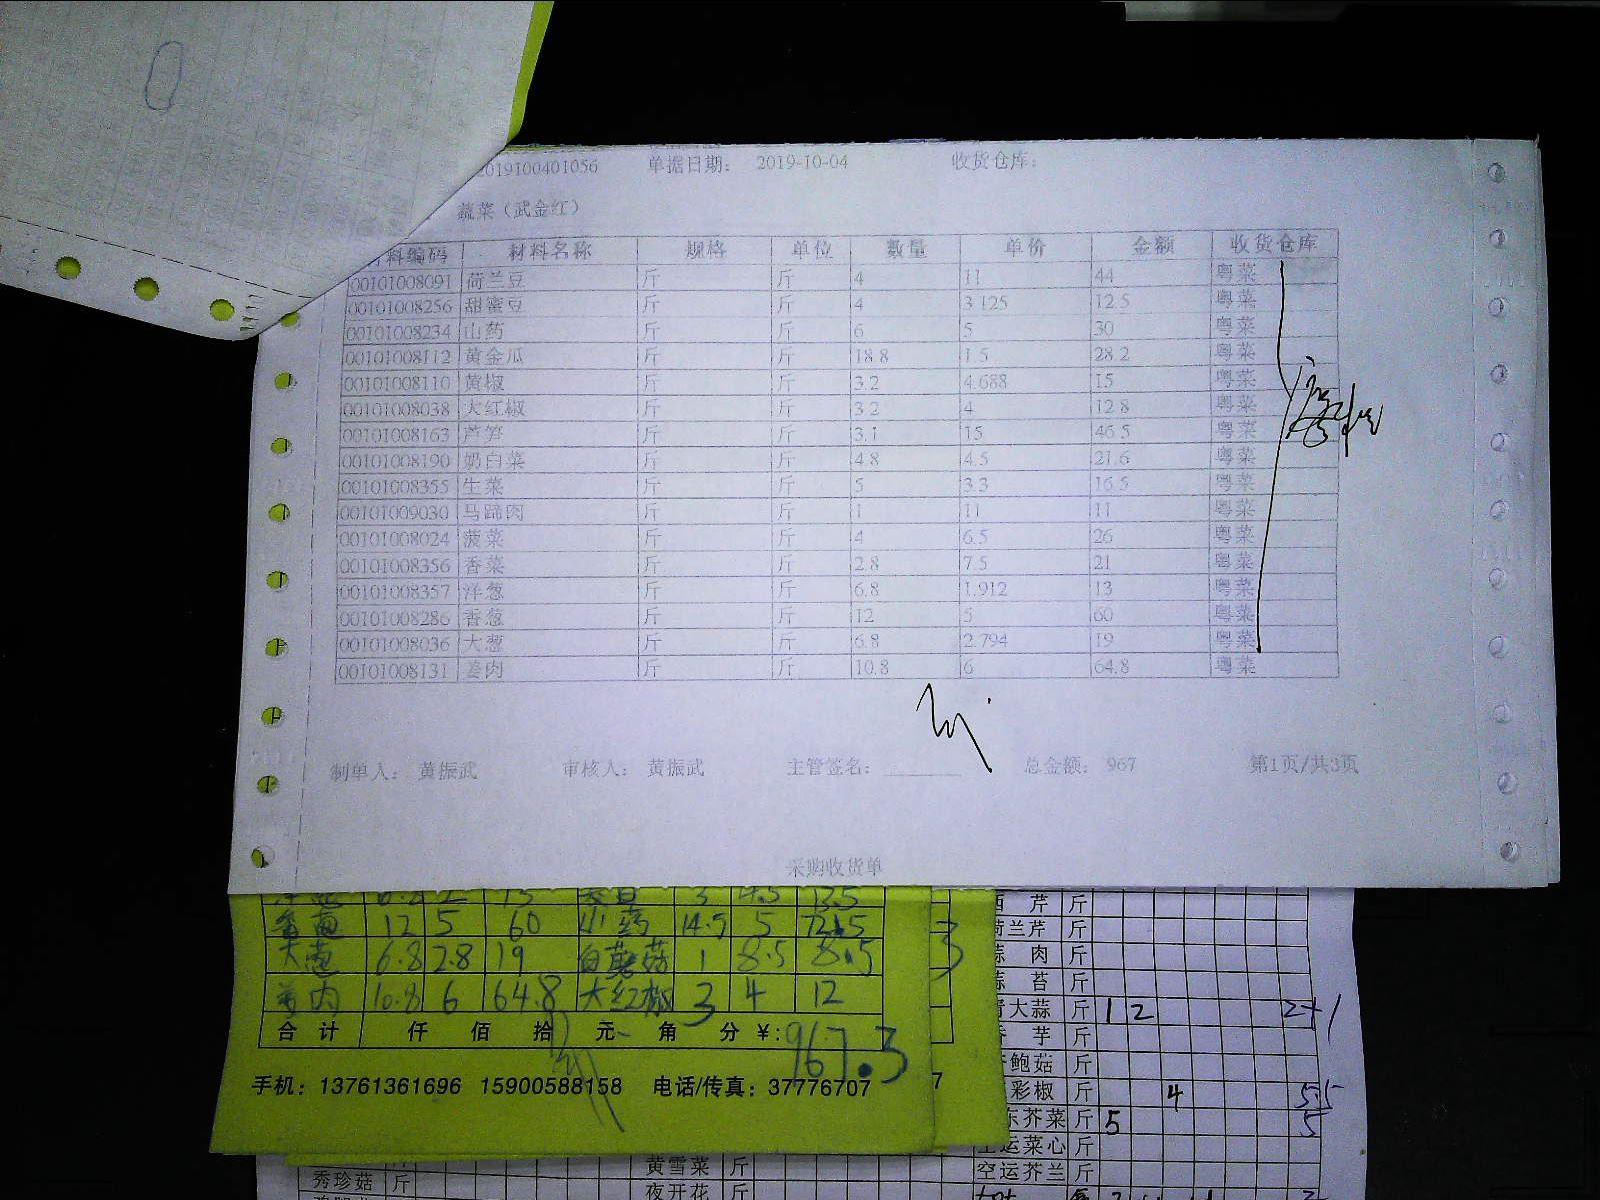 2019100401056 单据日期： 2019-10-04 收货仓库：
蔬菜（武金红）
料编码 材料名称 规格 单位 数量 单价 金额 收货仓库
00101008091 荷兰豆 斤 斤 4 11 44 粤菜
00101008256 甜蜜豆 斤 斤 4 3.125 12.5 粤菜
00101008234 山药 斤 斤 6 5 30 粤菜
00101008112 黄金瓜 斤 斤 18.8 1.5 28.2 粤菜
00101008110 黄椒 斤 斤 3.2 4.688 15 粤菜
00101008038 大红椒 斤 斤 3.2 4 12.8 粤菜
00101008163 芦笋 斤 斤 3.1 15 46.5 粤菜
00101008190 奶白菜 斤 斤 4.8 4.5 21.6 粤菜
00101008355 生菜 斤 斤 5 3.3 16.5 粤菜
00101009030 马蹄肉 斤 斤 1 11 11 粤菜
00101008024 菠菜 斤 斤 4 6.5 26 粤菜
00101008356 香菜 斤 斤 2.8 7.5 21 粤菜
00101008357 洋葱 斤 斤 6.8 1.912 13 粤菜
00101008286 香葱 斤 斤 12 5 60 粤菜
00101008036 大葱 斤 斤 6.8 2.794 19 粤菜
00101008131 姜肉 斤 斤 10.8 6 64.8 粤菜
制单人： 黄振武 审核人： 黄振武 主管签名： 总金额： 967 第1页/共3页
采购收货单
香葱 12 5 60 山药 14.5 5 72.5
大葱 6.8 2.8 19 白蘑菇 1 8.5 8.5
姜肉 10.8 6 64.8 大红椒 3 4 12
合计 仟 佰 拾 元 角 分 ¥: 967.3
手机：13761361696 15900588158 电话/传真：37776707
芹 斤
荷兰芹 斤
肉 斤
苔 斤
青大蒜 斤 1 2 2+1
芋 斤
鲍菇 斤
彩椒 斤 4 5.5
东芥菜 斤 5 5
运菜心 斤
空运芥兰 斤
黄雪菜 斤
秀珍菇 斤
夜开花 斤